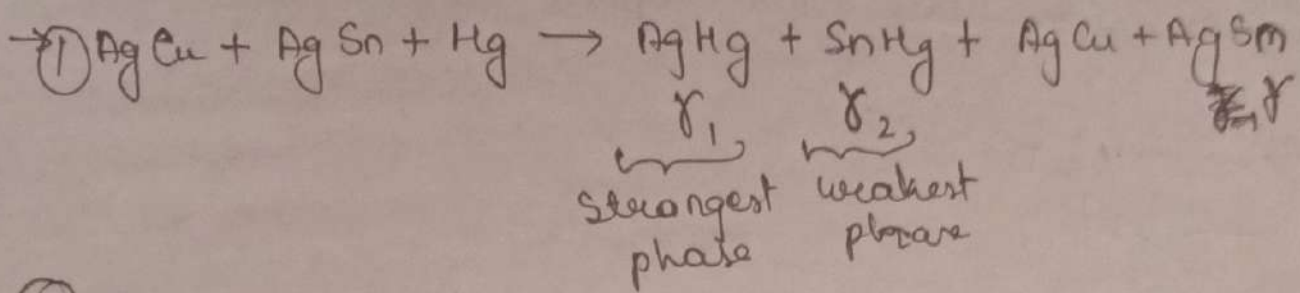 →① AgCu + AgSn + Hg → AgHg + SnHg + AgCu + AgSn
γ₁ γ₂, γ
strongest weakest
phase phase